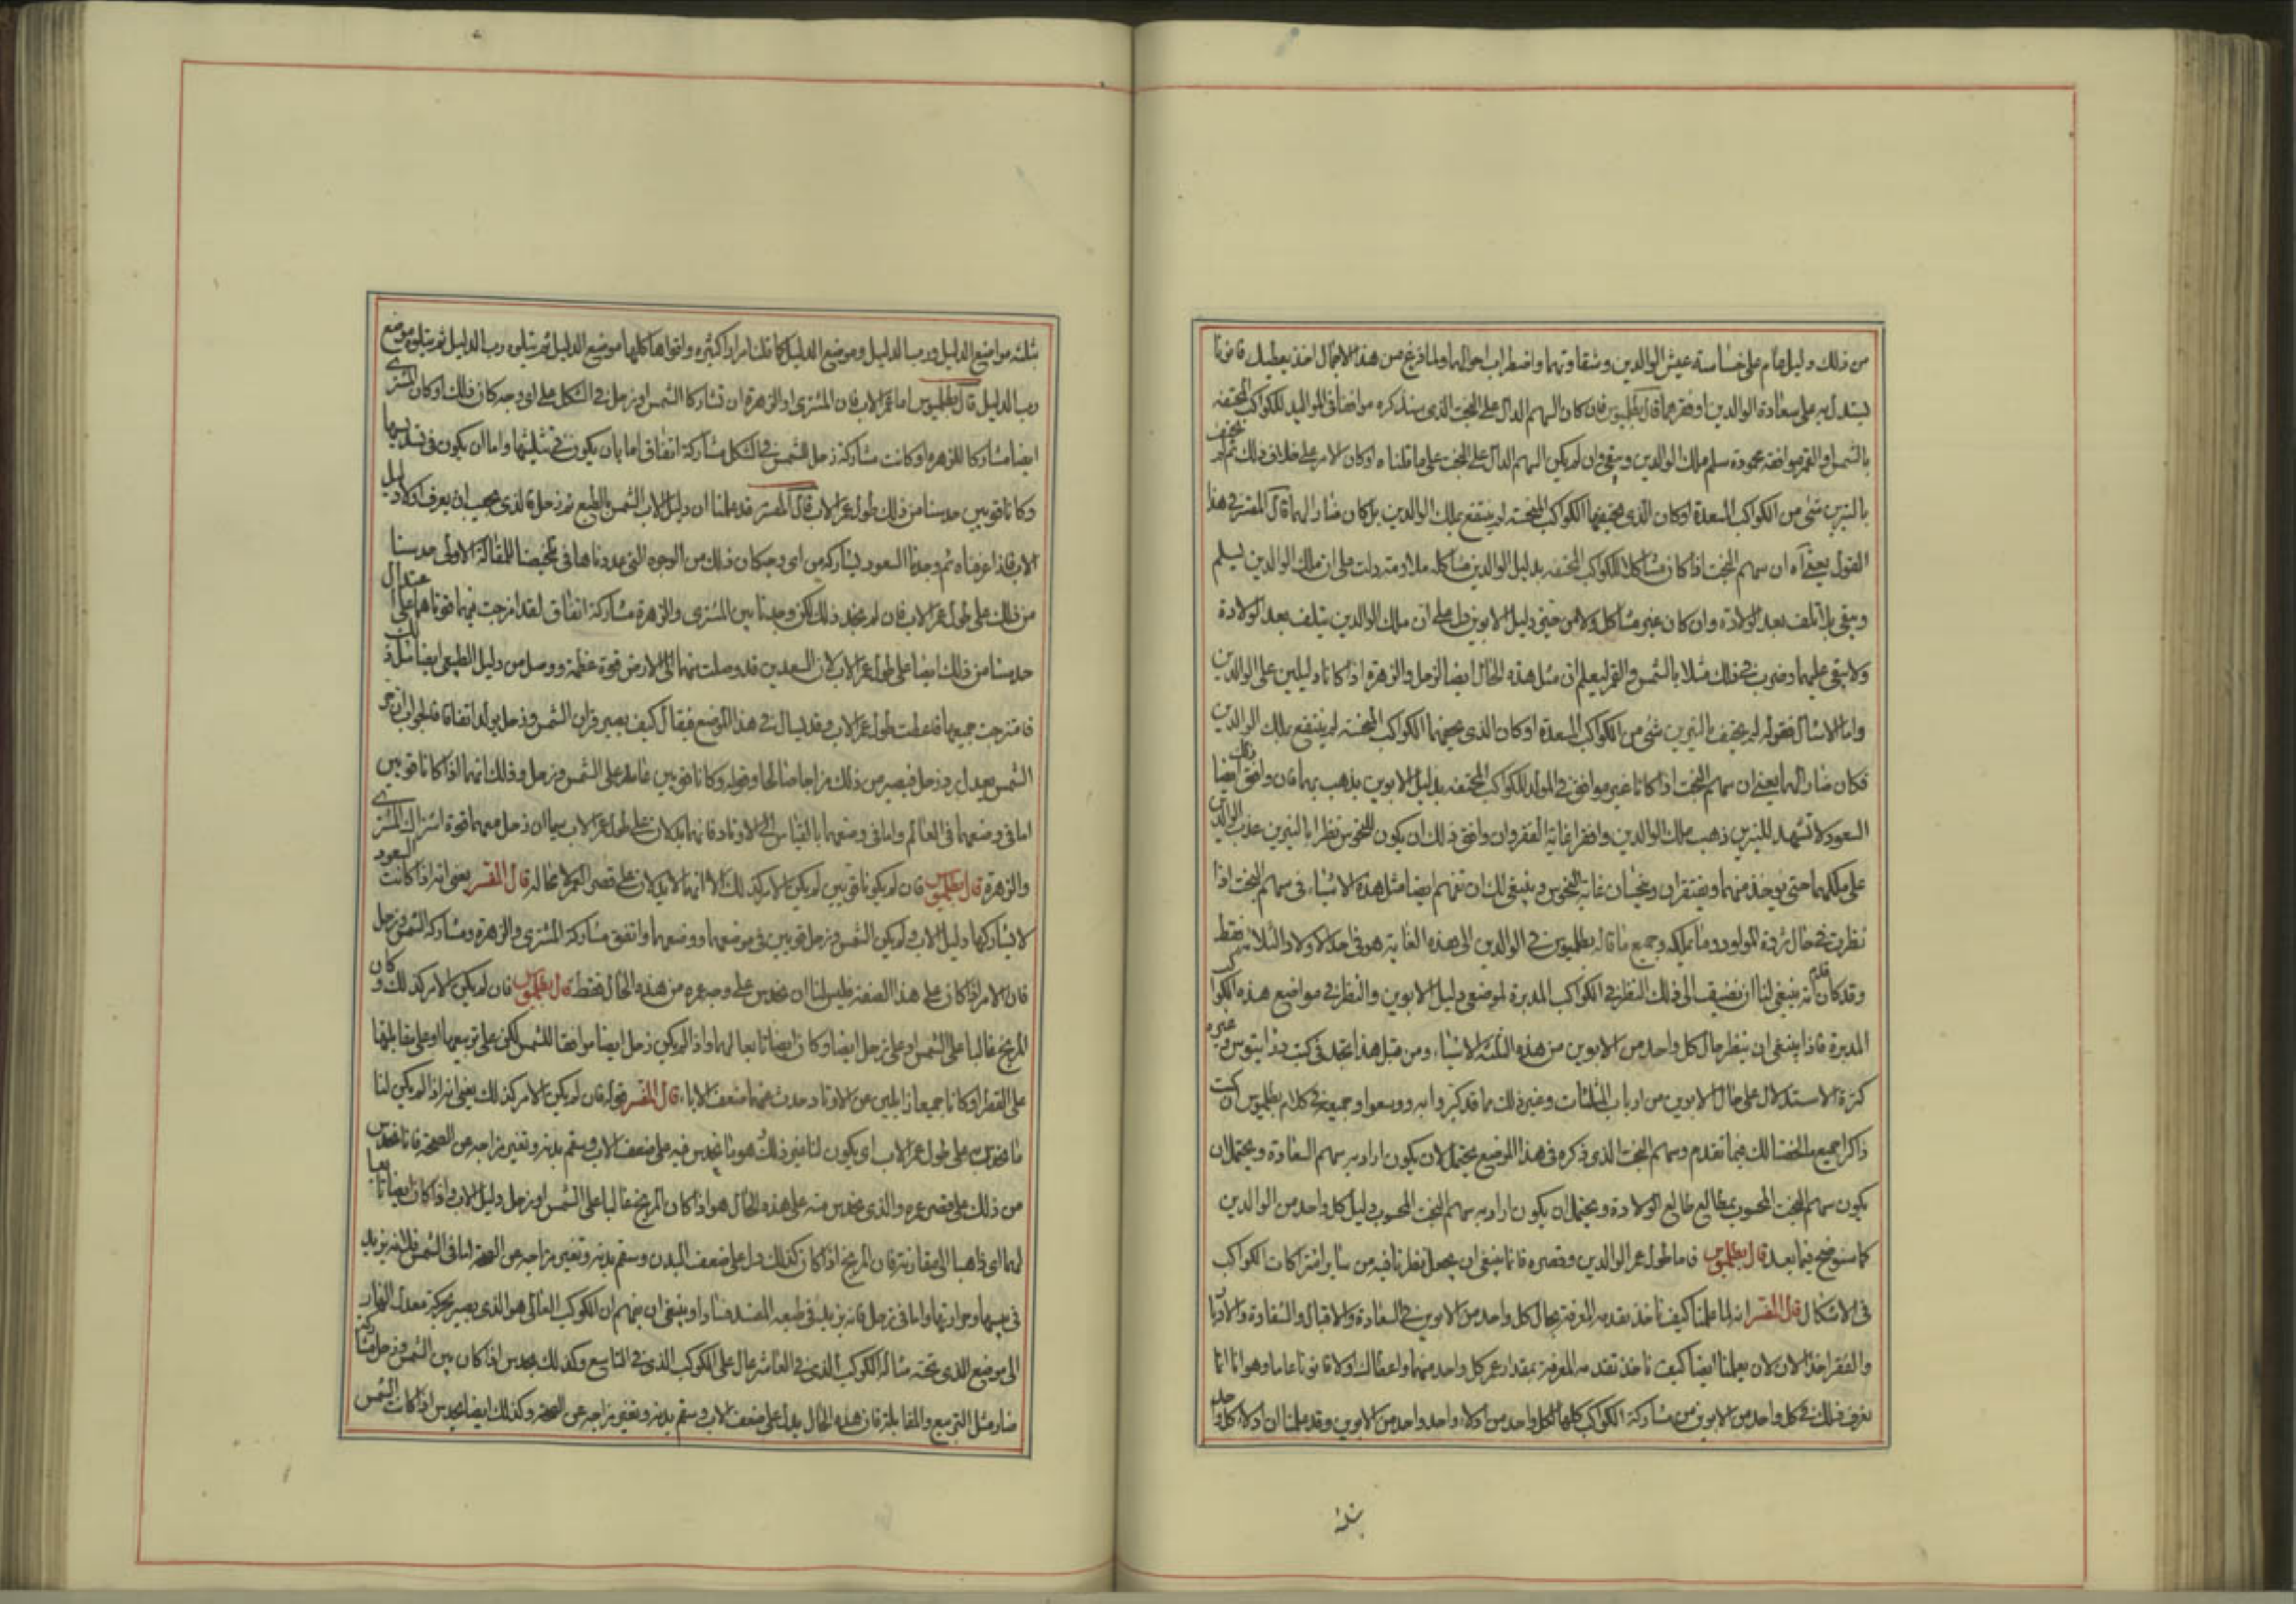 من ذلك دليل عام على خساسة عيش الوالدين وشقاوتهما واضطراب احوالهما ولما فرغ من هذا الاجمال اخذ يعطيك قانونا
يستدل به على سعادة الوالدين او فقرهما قال بطليموس فان كان السهم الدال على البخت الذى سنذكره موافقا فى المواليد للكواكب المحتفه
بالشمس او القمر موافقة محمودة سلم ملك الوالدين وبقى وان لم يكن السهم الدال على البخت على ما قلناه او كان الامر على خلاف ذلك ثم لم يحتف
بالنيرين شئ من الكواكب السعدة او كان الذى يحتف بها الكواكب المنحسة لم ينتفع بملك الوالدين بل كان ضارا لهما قال المفسر فى هذا
القول يعنى به ان سهم البخت اذا كان مشاكلا للكواكب المحتفه بدليل الوالدين مشاكلة ملاومة دلت على ان ملك الوالدين يسلم
ويبقى بلا تلف بعد الولادة وان كان غير مشاكل ولا من حيزى دليل الابوين دل على ان ملك الوالدين يتلف بعد الولادة
ولا يبقى عليهما وضرب فى ذلك مثلا بالشمس والقمر ليعلم ان مثل هذه الحال ايضا لزحل والزهرة اذا كانا دليلين على الوالدين
واما الامثال فقوله لم يحتف بالنيرين شئ من الكواكب السعدة او كان الذى يحف بهما الكواكب المنحسة لم ينتفع بملك الوالدين
فكان ضارا لهما يعنى ان سهم البخت اذا كانا غير موافق فى المولد للكواكب المحتفه بدليل الابوين يذهب بهما فان وافق ذلك ايضا
السعود لا تشهد للنيرين ذهب ملك الوالدين وافقرا غاية الفقر وان وافق ذلك ان يكون للنحوس نظرا بالنيرين عذب الوالدين
على ملكهما حتى يوخذ منهما ويفتقران ويحسان غاية النحوس وينبغى لك ان تفهم ايضا مثل هذه الاشياء فى سهم البخت اذا
نظرت فى حال ثروة المولود وما يملكه وجميع ما قاله بطليموس فى الوالدين الى هذه الغاية هو فى احد الاولاد الثلاثة فقط
وقد كان قدم انه ينبغى لنا ان نضيف الى ذلك النظر فى الكواكب المدبرة لموضعى دليل الابوين والنظر فى مواضع هذه الكواكب
المدبرة فاذا ينبغى ان ينظر حال كل واحد من الابوين من هذه الثلثة الاشياء ومن قبل هذا تجد فى كتب ذوراتيوس وغيره
كثرة الاستدلال على حال الابوين من ارباب المثلثات وغير ذلك مما قد كثروا به ووسعوا وجميعه فى كلام بطليموس ان كنت
ذاكرا جميع ما لخصنا لك فيما تقدم وسهم البخت الذى ذكره فى هذا الموضع يحتمل ان يكون اراد به سهم السعادة ويحتمل ان
يكون سهم البخت المحسوب بمطالع طالع الولادة ويحتمل ان يكون اراد به سهم البخت المحسوب دليل كل واحد من الوالدين
كما سنوضح فيما بعد قال بطليموس فاما طول عمر الوالدين وقصره فانا ينبغى ان يجعل نظرنا فيه من ساير اشتراكات الكواكب
فى الاشكال قال المفسر انه لما علمنا كيف ناخذ تقدمه المعرفة بحال كل واحد من الابوين فى السعادة والاقبال والشقاوة والادبار
والفقر اخذ الان لان يعلمنا ايضا كيف ناخذ تقدمه المعرفة بمقدار عمر كل واحد منهما واعطاك اولا قانونا عاما وهو انا انما
نعرف ذلك فى كل واحد من الابوين من مشاركة الكواكب كلها لكل واحد من ادلاء واحد واحد من الابوين وقد علمنا ان ادلاء كل واحد
ثلثة
ثلثة مواضع الدليل ورب الدليل وموضع الدليل كما قلنا مرارا كثيره واقواها كلها موضع الدليل ثم يتلوه رب الدليل ثم يتلوه موضع
رب الدليل قال بطليموس اما عمر الاب فان المشترى او الزهرة ان تشاركا الشمس او زحل فى الشكل على اى وجه كان ذلك او كان المشترى
ايضا مشاركا للزهره او كانت مشاركة زحل للشمس فى الشكل مشاركة اتفاق اما بان يكون فى تثليثها واما ان يكون فى تسديسها
وكانا قويين حدسنا من ذلك طول عمر الاب قال المفسر قد علمنا ان دليل الاب الشمس بالطبع ثم زحل فالذى يجب ان يعرف اولا دليل
الاب فاذا عرفناه ثم وجدنا السعود يشاركه من اى وجه كان ذلك من الوجوه التى عددناها فى تلخيصنا للمقالة الاولى حدسنا
من ذلك على طول عمر الاب فان لم نجد ذلك لكن وجدنا بين المشترى والزهرة مشاركة اتفاق لقد امزجت منهما قوتاهما على اعتدال
حدسنا من ذلك ايضا على طول عمر الاب لان السعدين قد وصلت منهما الى الارض قوة عظمة ووصل من دليل الطبيعى ايضا مثل ذلك
فامتزجت جميعها فاعطت طول عمر الاب وقد يسال فى هذا الموضع فيقال كيف يصير قران الشمس وزحل يولد اتفاقا فالجواب ان حر
الشمس يعدل برد زحل فيصير من ذلك مزاجا صالحا وقوله وكانا قويين فاطلر على الشمس وزحل وذلك انهما اذا كانا قويين
اما فى وضعهما فى العالم واما فى وضعهما بالقياس الى الاوتاد فانهما يدلان على طول عمر الاب سيما ان زحل معهما قوة اشتراك المشترى
والزهرة قال بطليموس فان لم يكونا قويين لم يكن الامر كذلك الا انهما لا يدلان على قصر العمر لا محاله قال المفسر يعنى انه اذا كانت السعود
لا تشاركها دليل الاب ولم يكن الشمس وزحل قويين فى موضعهما ووضعهما واتفق مشاركة المشترى والزهرة ومشاركه الشمس وزحل
فان الامر اذا كان على هذا الصفة فليس لنا ان نحدس على وجه عمره من هذه الحال فقط قال بطليموس فان لم يكن الامر كذلك وكان
المريخ غالبا على الشمس او على زحل ايضا وكان ايضا تابعا لهما واذا لم يكن زحل ايضا موافقا للشمس لكن على تربيعها او على مقابلتها
على القطر او كانا جميعا زايلين عن الاوتاد حدث عنهما ضعف الاباء قال المفسر قوله فان لم يكن الامر كذلك يعنى انه اذا لم يكن لنا
ما نحدس على طول عمر الاب اى يكون لنا غير ذلك هو ما نحدس فيه على ضعف الاب وسقم بدنه وتغير مزاجه عن الصحة فانا نحدس
من ذلك على قصر عمره والذى نحدس منه على هذه الحال هو اذا كان المريخ غالبا على الشمس او زحل دليل الاب واذا كان ايضا تابعا
لهما اى ذاهبا الى مقارنته فان المريخ اذا كان كذلك دل على ضعف البدن وسقم بدنه وتغير مزاجه عن الصحة اما فى الشمس فلانه يزيد
فى يبسها وحرارتها واما فى زحل فانه يزيد فى طبعه المفسد فسادا وينبغى ان يفهم ان الكوكب العالى هو الذى يصير بحركة معدل النهار
الى موضع الذى تحته مثاله الكوكب الذى فى العاشر عال على الكوكب الذى فى التاسع وكذلك يحدس اذا كان بين الشمس وزحل مشاركة
ضارة مثل التربيع والمقابلة فان هذه الحال يدل على ضعف الاب وسقم بدنه وتغير مزاجه عن الصحة وكذلك ايضا يحدس اذا كانت الشمس